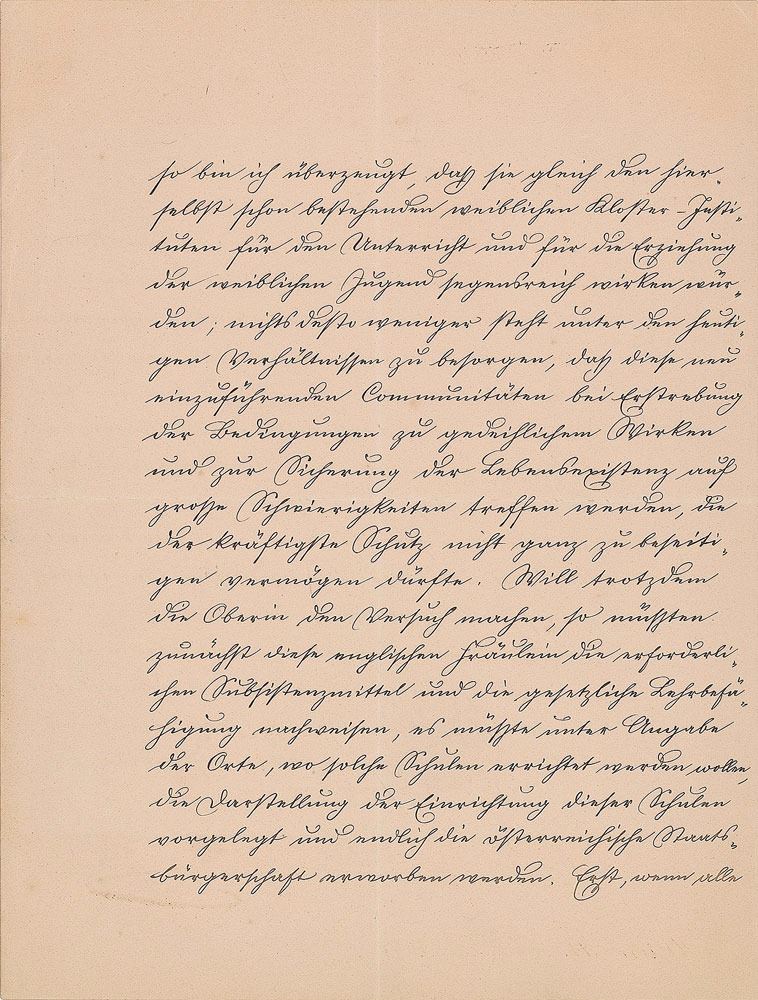 so bin ich überzeugt, daß sie gleich den hier-
selbst schon bestehenden weiblichen Kloster-Insti-
tuten für den Unterricht und für die Erziehung
der weiblichen Jugend segensreich wirken wür-
den; nichts desto weniger steht unter den heuti-
gen Verhältnissen zu besorgen, daß diese neu
einzuführenden Communitäten bei Erstrebung
der Bedingungen zu gedeihlichem Wirken
und zur Sicherung der Lebensexistenz auf
große Schwierigkeiten treffen werden, die
der kräftigste Schutz nicht ganz zu beseiti-
gen vermögen dürfte. Will trotzdem
die Oberin den Versuch machen, so müßten
zunächst diese englischen Fräulein die erforderli-
chen Subsistenzmittel und die gesetzliche Lehrbefä-
higung nachweisen, es müßte unter Angabe
der Orte, wo solche Schulen errichtet werden wollen,
die Darstellung der Einrichtung dieser Schulen
vorgelegt und endlich die österreichische Staats-
bürgerschaft erworben werden. Erst, wenn alle